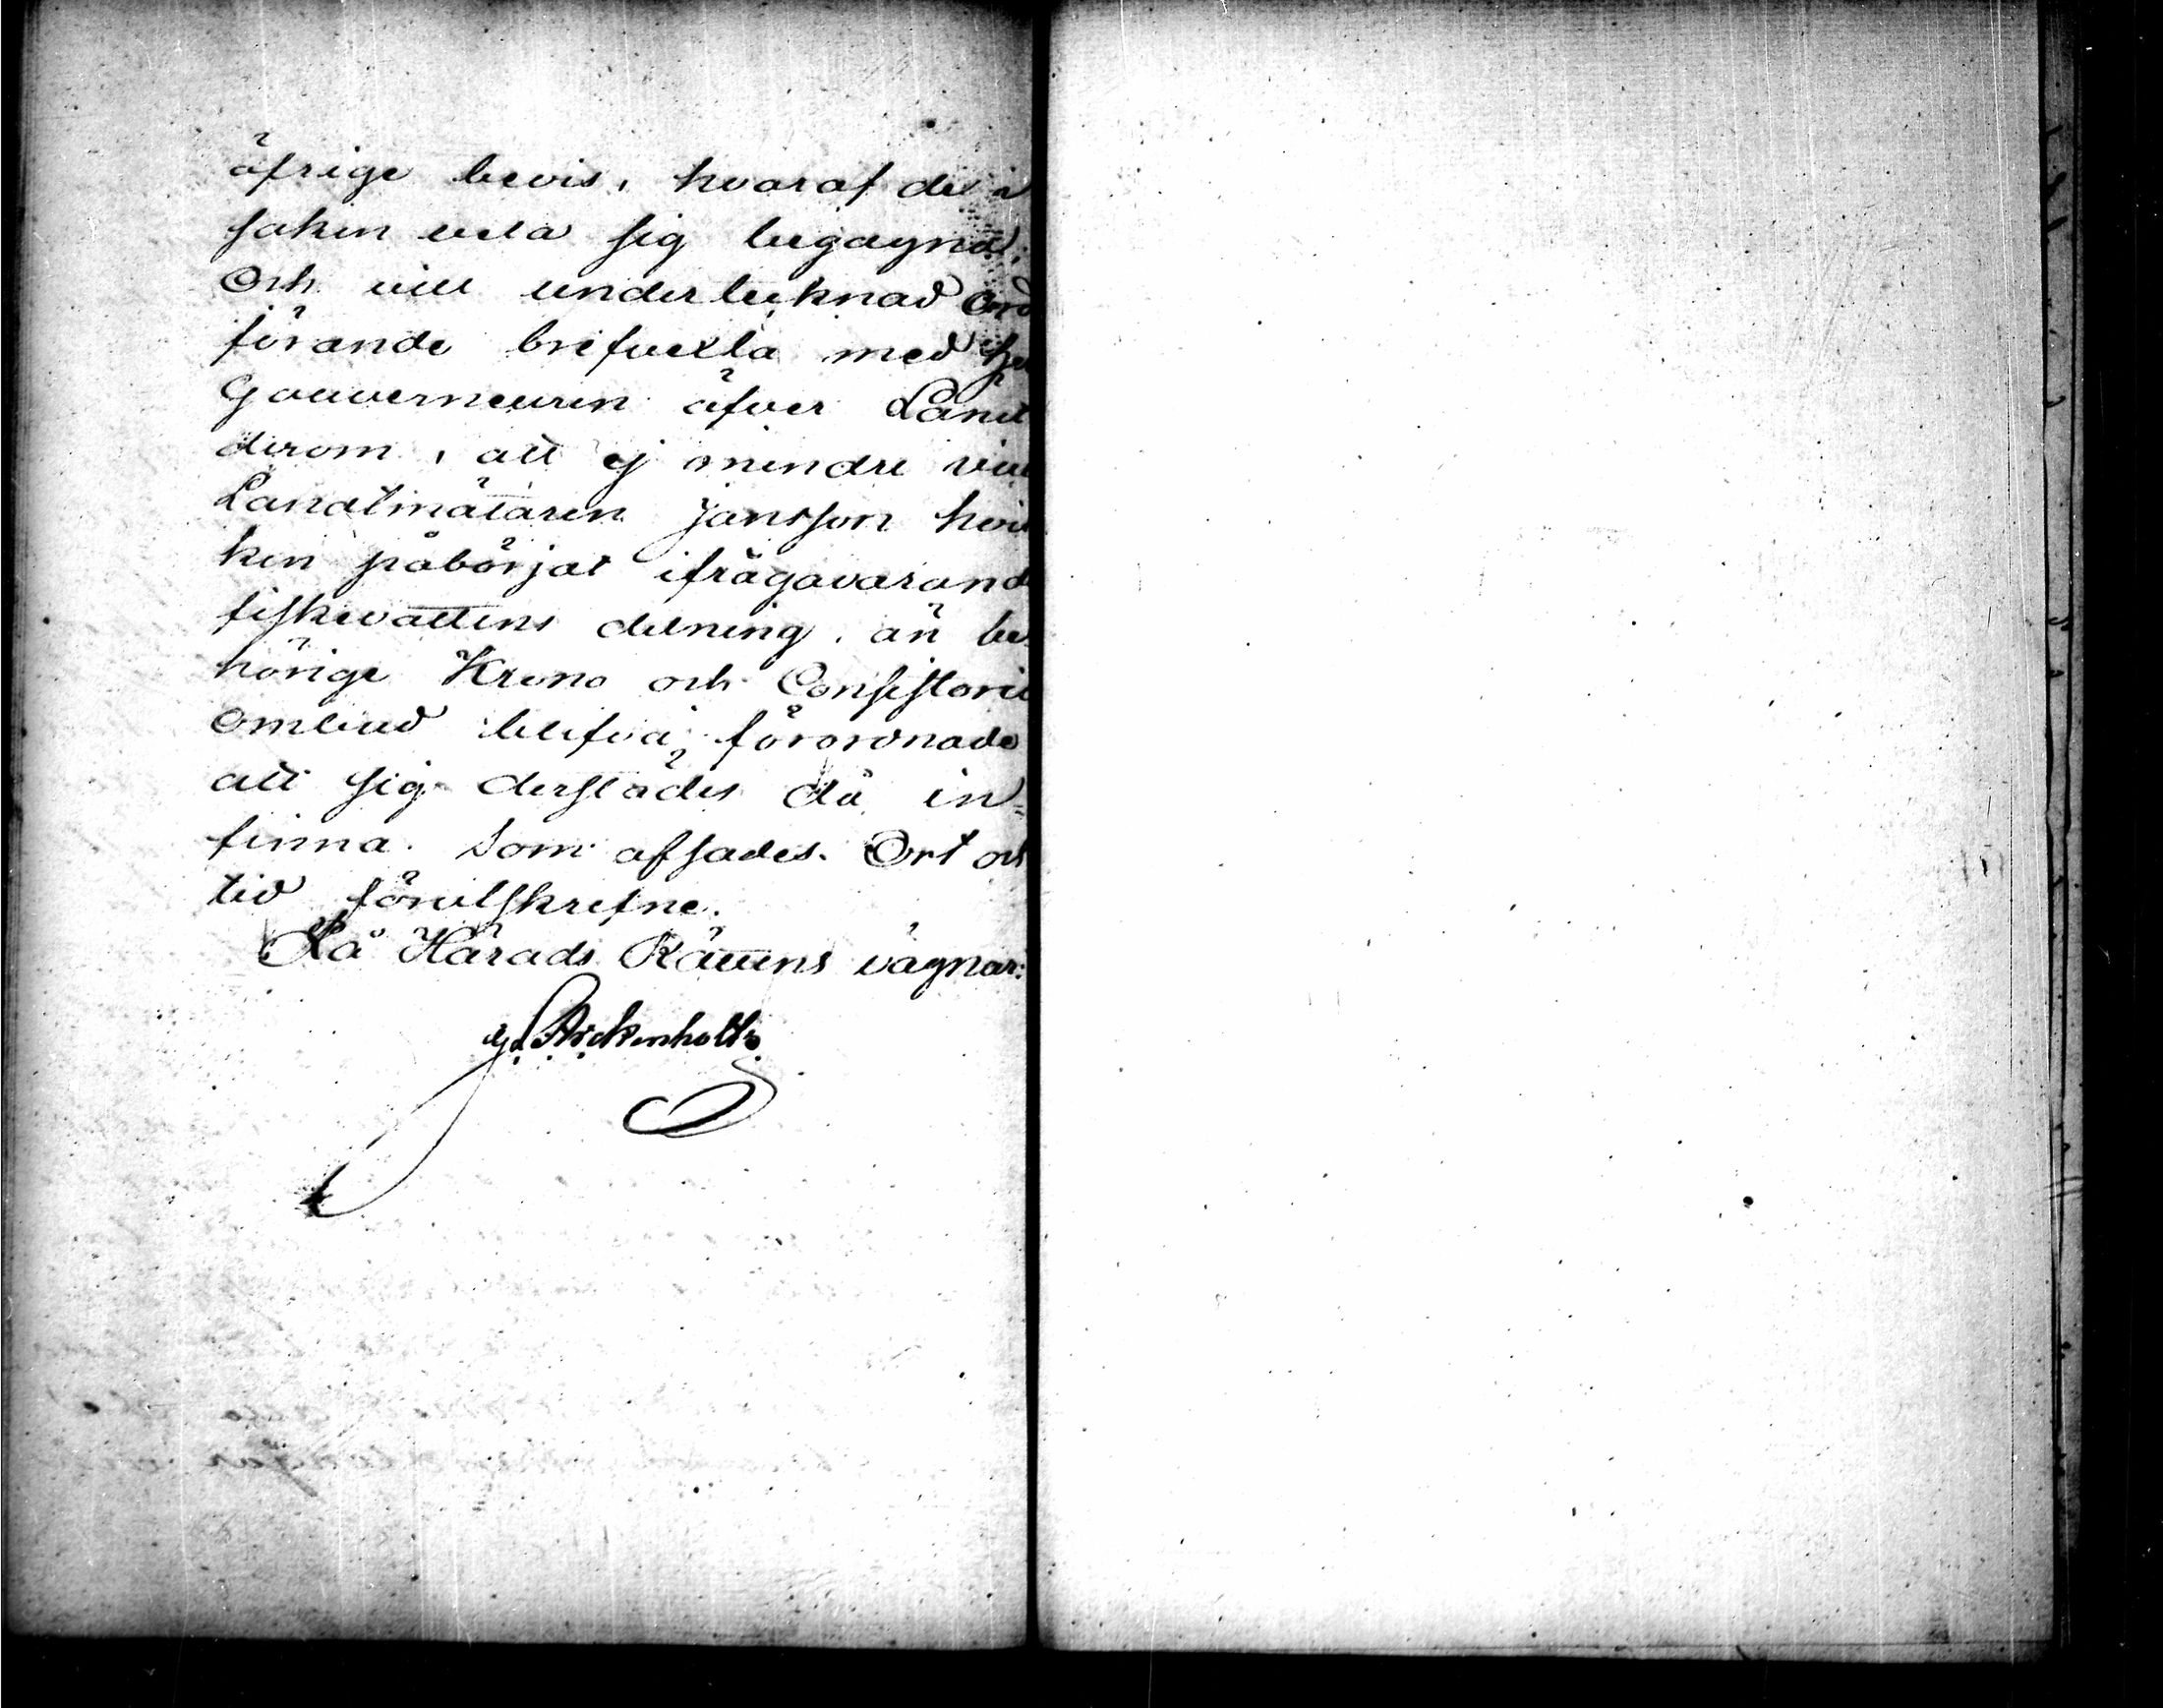 öfrige bevis, hvaraf de i
saken vela sig begagna;
Och vill undertecknad Ord
förande brefvexla med Her
Gouverneuren öfver Länet
derom, att ej mindre
Landtmätaren Jansson hvil
ken påbörjat ifrågavarand
fiskevattens delning, än be
hörige Krono och Consistorii
Ombud blifva förordnade
att sig derstädes då in=
finna. Som afsades. Ort och
tid förutskrefne.
På Härads Rättens vägnar:
Arckenholtz